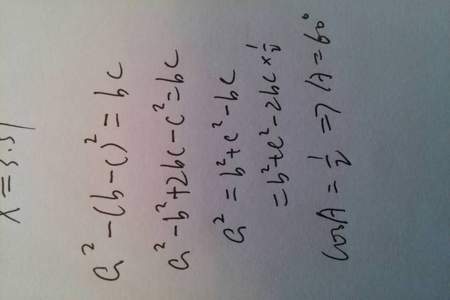 x = 3.51
a² - (b-c)² = bc
a² - b² + 2bc - c² = bc
a² = b² + c² - bc
= b² + c² - 2bc × 1/2
cosA = 1/2 ⇒ A = 60°